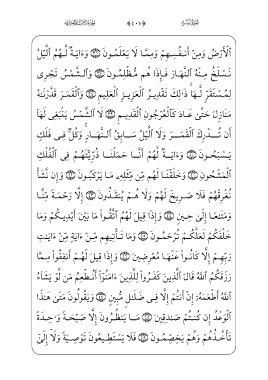 الْأَرْضُ وَمِنْ أَنفُسِهِمْ وَمِمَّا لَا يَعْلَمُونَ ۝ وَءَايَةٌ لَّهُمُ الَّيْلُ
نَسْلَخُ مِنْهُ النَّهَارَ فَإِذَا هُم مُّظْلِمُونَ ۝ وَالشَّمْسُ تَجْرِى
لِمُسْتَقَرٍّ لَّهَا ذَٰلِكَ تَقْدِيرُ الْعَزِيزِ الْعَلِيمِ ۝ وَالْقَمَرَ قَدَّرْنَٰهُ
مَنَازِلَ حَتَّىٰ عَادَ كَالْعُرْجُونِ الْقَدِيمِ ۝ لَا الشَّمْسُ يَنۢبَغِى لَهَا
أَن تُدْرِكَ الْقَمَرَ وَلَا الَّيْلُ سَابِقُ النَّهَارِ وَكُلٌّ فِى فَلَكٍ
يَسْبَحُونَ ۝ وَءَايَةٌ لَّهُمْ أَنَّا حَمَلْنَا ذُرِّيَّتَهُمْ فِى الْفُلْكِ
الْمَشْحُونِ ۝ وَخَلَقْنَا لَهُم مِّن مِّثْلِهِۦ مَا يَرْكَبُونَ ۝ وَإِن نَّشَأْ
نُغْرِقْهُمْ فَلَا صَرِيخَ لَهُمْ وَلَا هُمْ يُنقَذُونَ ۝ إِلَّا رَحْمَةً مِّنَّا
وَمَتَٰعًا إِلَىٰ حِينٍ ۝ وَإِذَا قِيلَ لَهُمُ اتَّقُوا۟ مَا بَيْنَ أَيْدِيكُمْ وَمَا
خَلْفَكُمْ لَعَلَّكُمْ تُرْحَمُونَ ۝ وَمَا تَأْتِيهِم مِّنْ ءَايَةٍ مِّنْ ءَايَٰتِ
رَبِّهِمْ إِلَّا كَانُوا۟ عَنْهَا مُعْرِضِينَ ۝ وَإِذَا قِيلَ لَهُمْ أَنفِقُوا۟ مِمَّا
رَزَقَكُمُ اللَّهُ قَالَ الَّذِينَ كَفَرُوا۟ لِلَّذِينَ ءَامَنُوٓا۟ أَنُطْعِمُ مَن لَّوْ يَشَآءُ
اللَّهُ أَطْعَمَهُۥٓ إِنْ أَنتُمْ إِلَّا فِى ضَلَٰلٍ مُّبِينٍ ۝ وَيَقُولُونَ مَتَىٰ هَٰذَا
الْوَعْدُ إِن كُنتُمْ صَٰدِقِينَ ۝ مَا يَنظُرُونَ إِلَّا صَيْحَةً وَٰحِدَةً
تَأْخُذُهُمْ وَهُمْ يَخِصِّمُونَ ۝ فَلَا يَسْتَطِيعُونَ تَوْصِيَةً وَلَآ إِلَىٰٓ